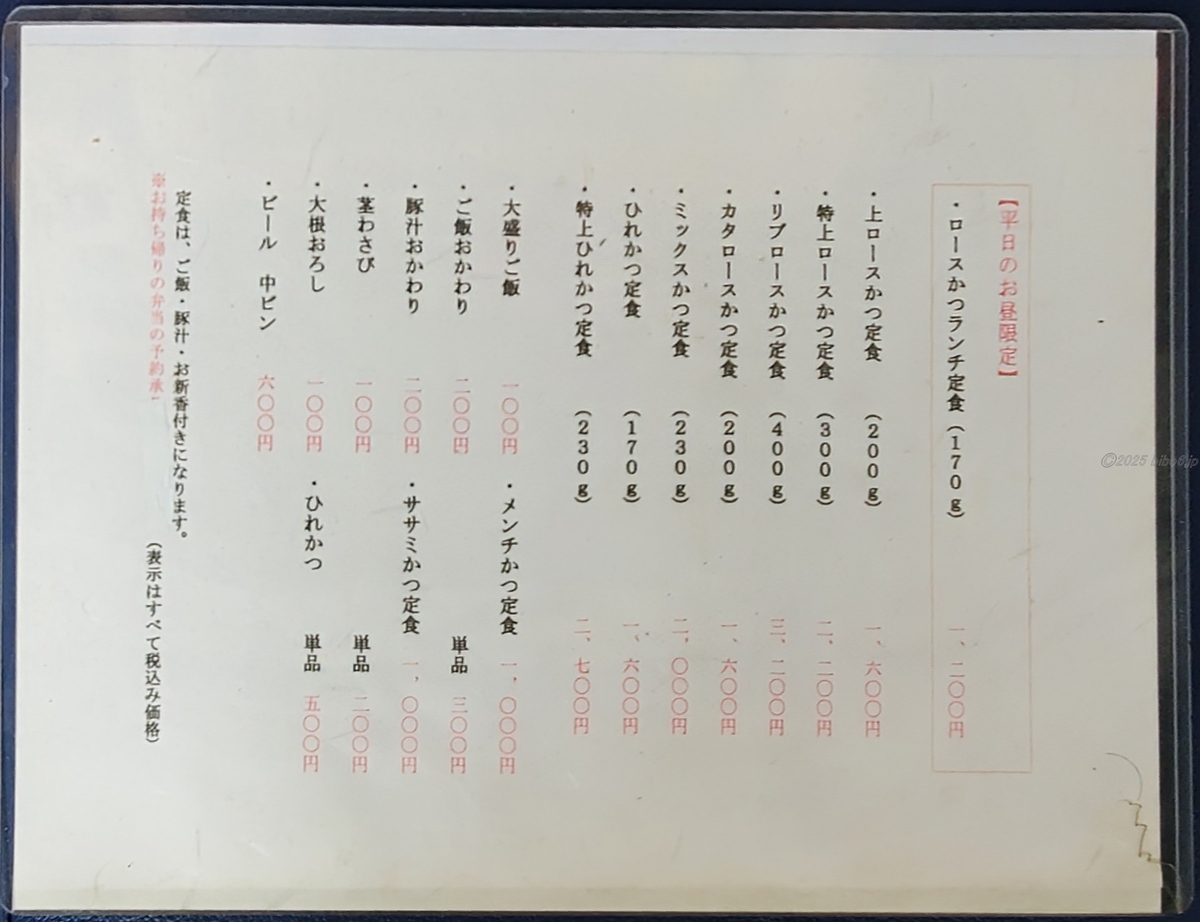 【平日のお昼限定】
・ロースかつランチ定食（170g） 一、二〇〇円
・上ロースかつ定食 （200g） 一、六〇〇円
・特上ロースかつ定食 （300g） 二、二〇〇円
・リブロースかつ定食 （400g） 三、二〇〇円
・カタロースかつ定食 （200g） 一、六〇〇円
・ミックスかつ定食 （230g） 二、〇〇〇円
・ひれかつ定食 （170g） 一、六〇〇円
・特上ひれかつ定食 （230g） 二、七〇〇円
・大盛りご飯 一〇〇円 ・メンチかつ定食 一、〇〇〇円
・ご飯おかわり 二〇〇円 単品 三〇〇円
・豚汁おかわり 二〇〇円 ・ササミかつ定食 一、〇〇〇円
・茎わさび 一〇〇円 単品 二〇〇円
・大根おろし 一〇〇円 ・ひれかつ 単品 五〇〇円
・ビール 中ビン 六〇〇円
定食は、ご飯・豚汁・お新香付きになります。
※お持ち帰りの弁当の予約承 （表示はすべて税込み価格）
©2025 bibo6.jp